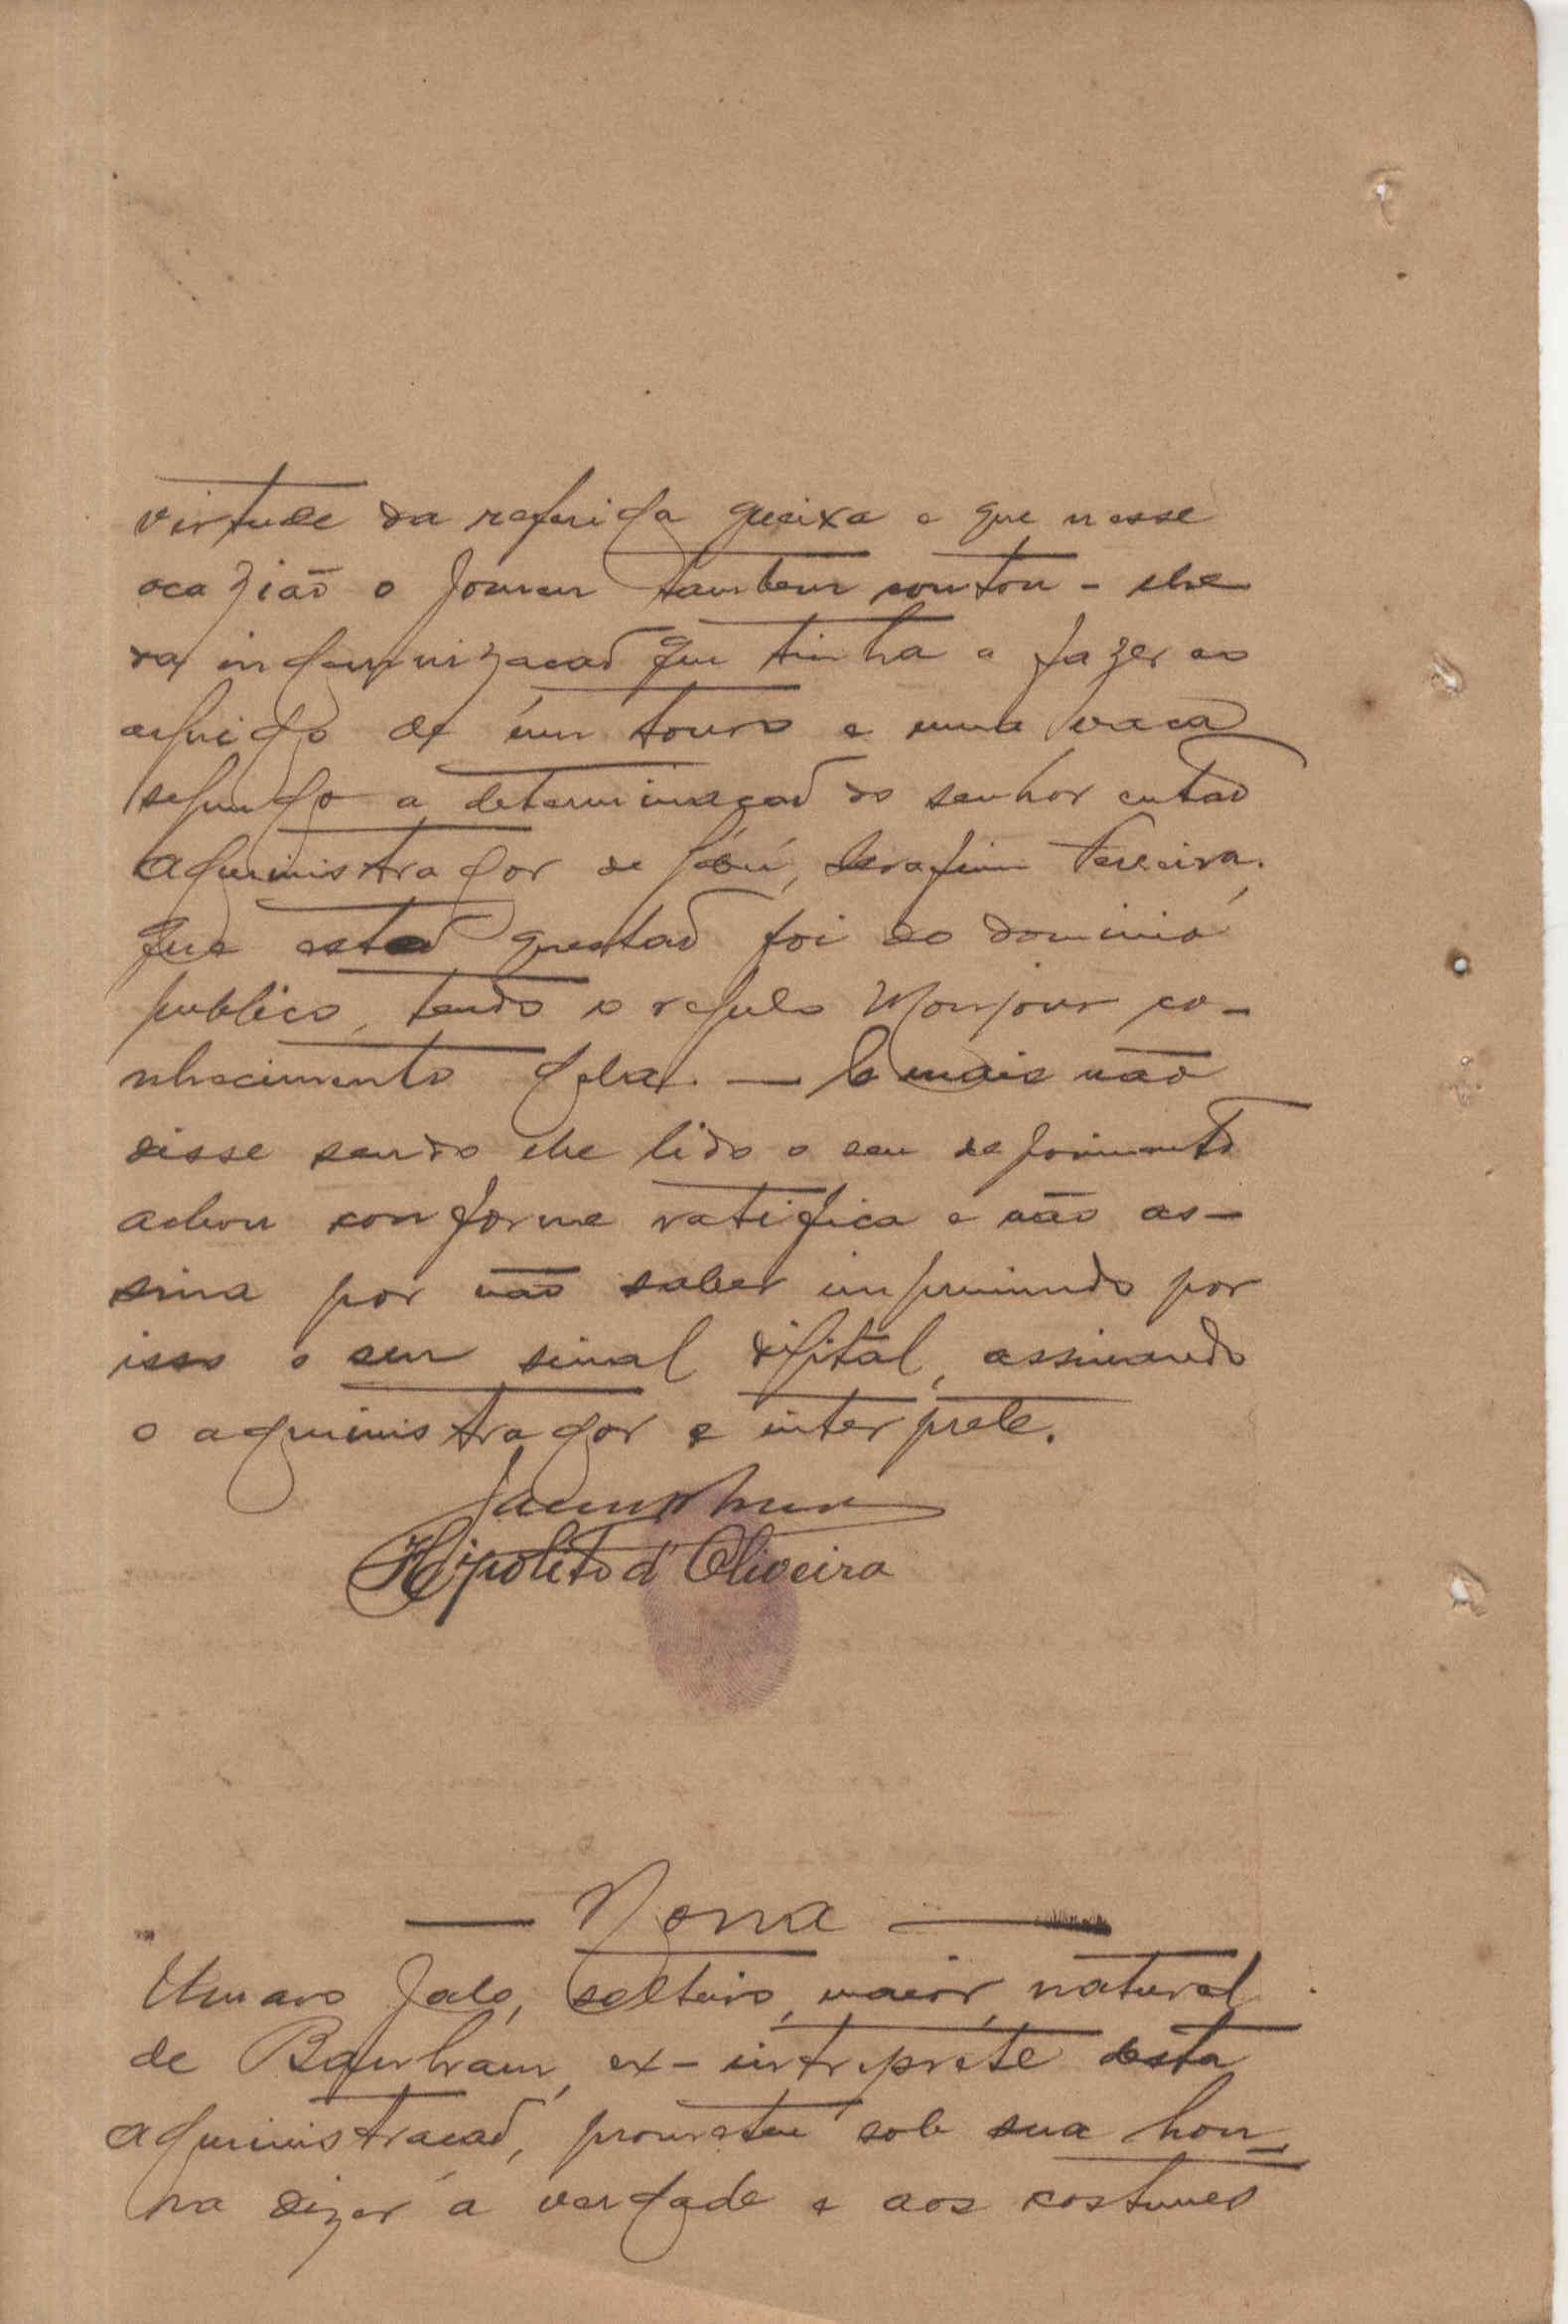 virtude da referida queixa e que nesse
ocazião o Jomen tambem contou-lhe
da indemnizacaõ que tinha a fazer ao
arguido de um touro e uma vaca
segundo a determinaçaõ do senhor entaõ
administrador de Gabú, Serafim Ferreira,
que esta questaõ foi do dominio
publico, tendo o regulo Monjour co-
nhecimento dela. — E mais não
disse sendo lhe lido o seu depoimento
achou conforme ratifica e não as-
sina por não saber imprimindo por
isso o seu sinal digital, assinando
o administrador e interprete.
Hipolito d'Oliveira
— Nona —
Umaro Jalo, solteiro, maior, natural
de ex-intreprête desta
administracaõ, prometeu sob sua hon-
ra dizer a verdade e aos costumes